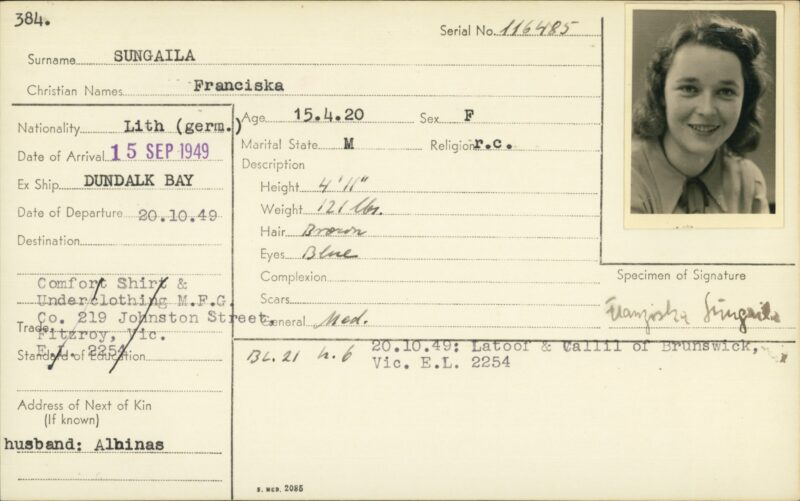 384.
Serial No. 116485
Surname SUNGAILA
Christian Names Franciska
Nationality Lith (germ.)
Date of Arrival 15 SEP 1949
Ex Ship DUNDALK BAY
Date of Departure 20.10.49
Destination
Comfort Shirt &
Underclothing M.F.G.
Co. 219 Johnston Street,
Trade
Fitzroy, Vic.
E.L. 2254
Standard of Education
Address of Next of Kin
(If known)
husband: Albinas
Age 15.4.20 Sex F
Marital State M Religion r.c.
Description
Height 4'11"
Weight 121 lbs.
Hair Brown
Eyes Blue
Complexion
Scars
General Med.
Specimen of Signature
Franziska Sungaila
BL. 21 H. 6 20.10.49: Latoof & Callil of Brunswick,
Vic. E.L. 2254
S. MCD. 2085